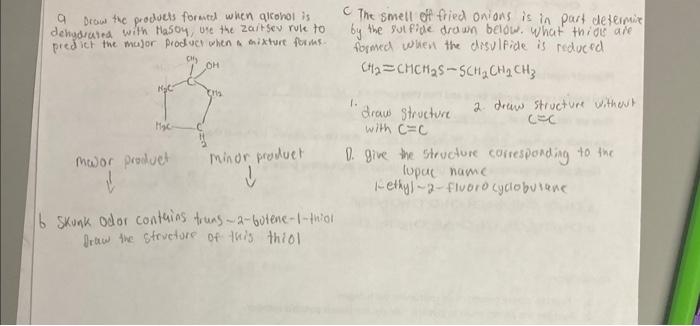 a Draw the products formed when alcohol is
dehydrated with H2SO4, use the zaitsev rule to
predict the major product when a mixture forms.
CH3 OH
C
H2C CH2
H2C C
H2
major product minor product
b Skunk odor contains trans-2-butene-1-thiol
Draw the structure of this thiol
C The smell of fried onions is in part determine
by the sulfide drawn below. What thiols are
formed when the disulfide is reduced
CH2=CHCH2S-SCH2CH2CH3
1. draw structure with C=C
2. draw structure without C=C
D. give the structure corresponding to the
Iupac name
1-ethyl-2-fluorocyclobutane